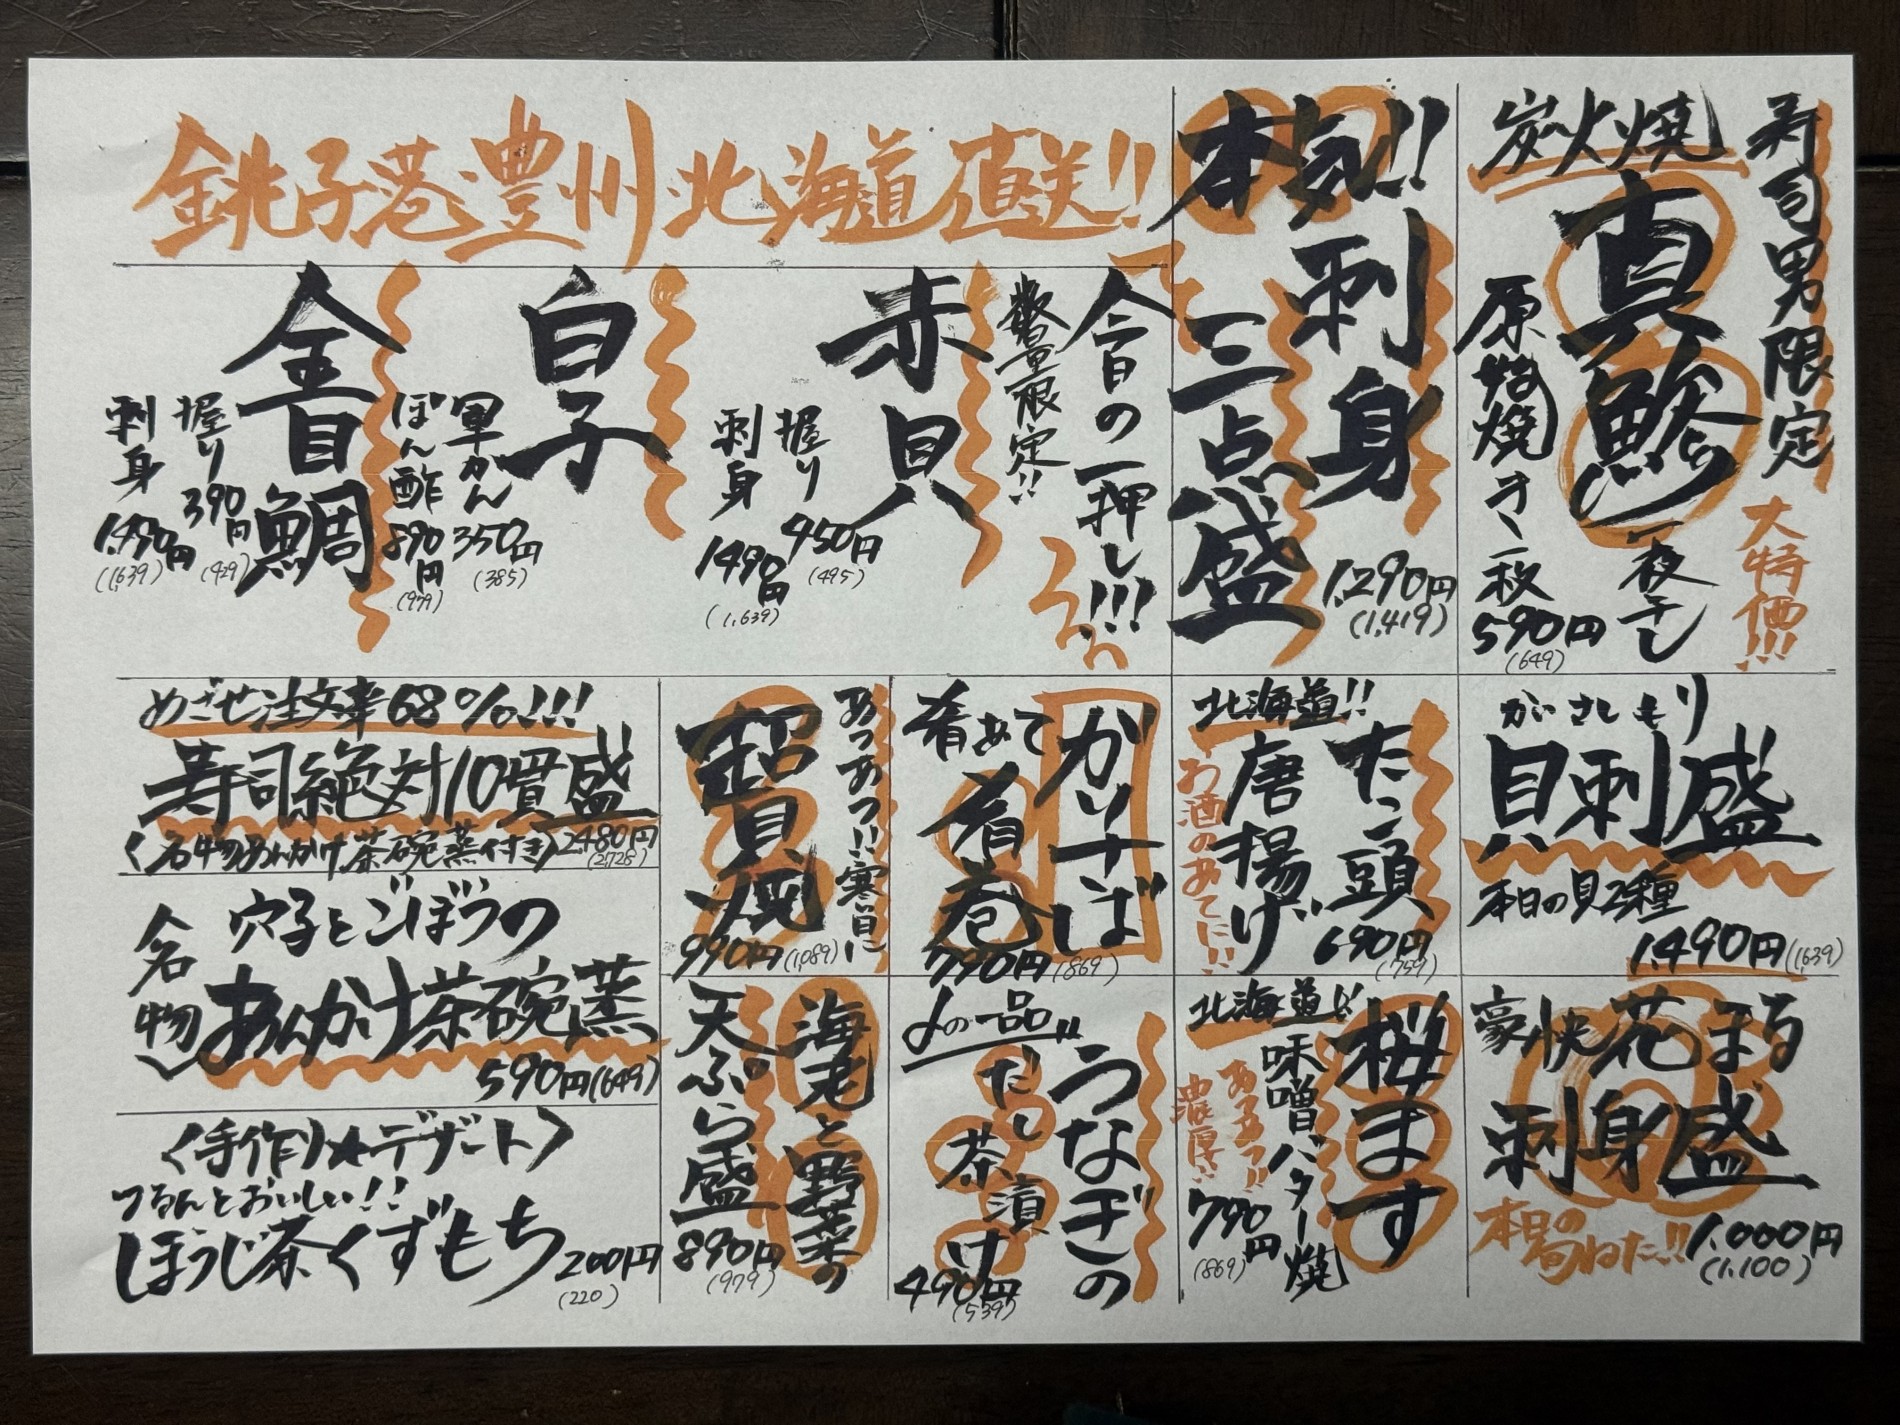 銚子港 豊州 北海道 直送!!
寿司男限定
大特価!!!
炭火焼
真鯵
一夜干し
原始焼き 一枚
590円
(649)
本気!!
刺身
三点盛
1,290円
(1,419)
今日の一押し!!!
数量限定!!
赤貝
握り 450円
(495)
刺身 1490円
(1,639)
白子
軍かん 350円
(385)
ぽん酢 890円
(979)
金目鯛
握り 390円
(429)
刺身 1,490円
(1,639)
がいさしもり
貝刺盛
本日の貝2種
1,490円(1,639)
北海道!!
たこ頭
唐揚げ
お酒のあてに!!
690円
(759)
かりナば
肴あて
肴巻
790円(869)
あつあつ!!寒い日に
超貝焼
990円(1,089)
めざせ注文率68%!!!
寿司絶対10貫盛
〈名物あんかけ茶碗蒸付き〉2,480円
(2,728)
〈名物〉
穴子とごぼうの
あんかけ茶碗蒸
590円(649)
〈手作り★デザート〉
つるんとおいしい!!
ほうじ茶くずもち
200円
(220)
豪快 花まる
刺身盛
本日の旬ねた!!
1,000円
(1,100)
北海道!!
桜ます
味噌バター焼
あつあつ!!
濃厚!!
790円
(869)
〆の一品!!
うなぎの
だし茶漬け
490円
(539)
海老と野菜の
天ぷら盛
890円
(979)